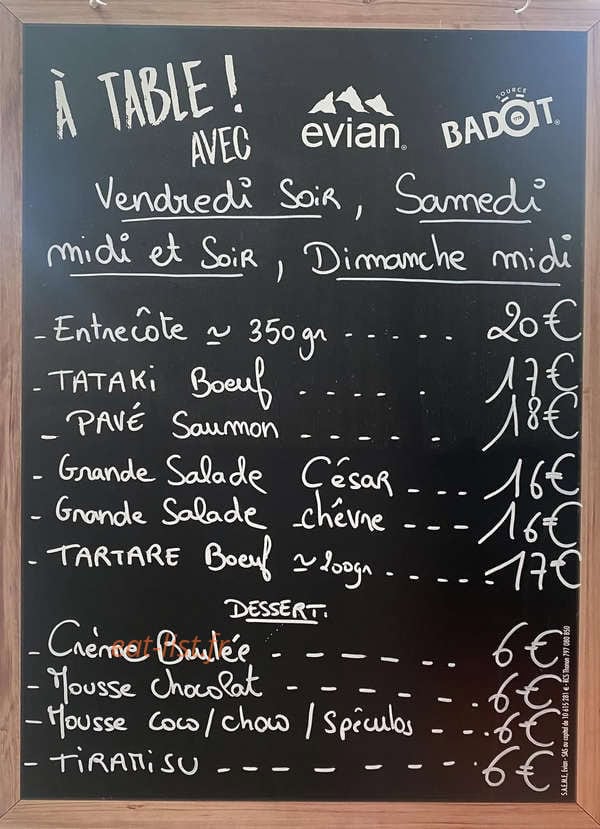 À TABLE !
AVEC
evian
SOURCE
BADOIT
Vendredi Soir, Samedi
midi et Soir, Dimanche midi
- Entrecôte ≃ 350gr ----- 20€
- TATAKi Boeuf ---- . 17€
- PAVÉ Saumon ----- 18€
- Grande Salade César --- 16€
- Grande Salade chêvre --- 16€
- TARTARE Boeuf ≃ 200gr ------ 17€
DESSERT.
- Crème Brulée ------ 6€
- Mousse Chocolat ------ 6€
- Mousse coco/choco/Spéculos --- 6€
- TiRAMiSU ------- 6€
eat-list.fr
S.A.E.M.E. Evian - SAS au capital de 10 615 281 € - RCS Thonon 797 080 850